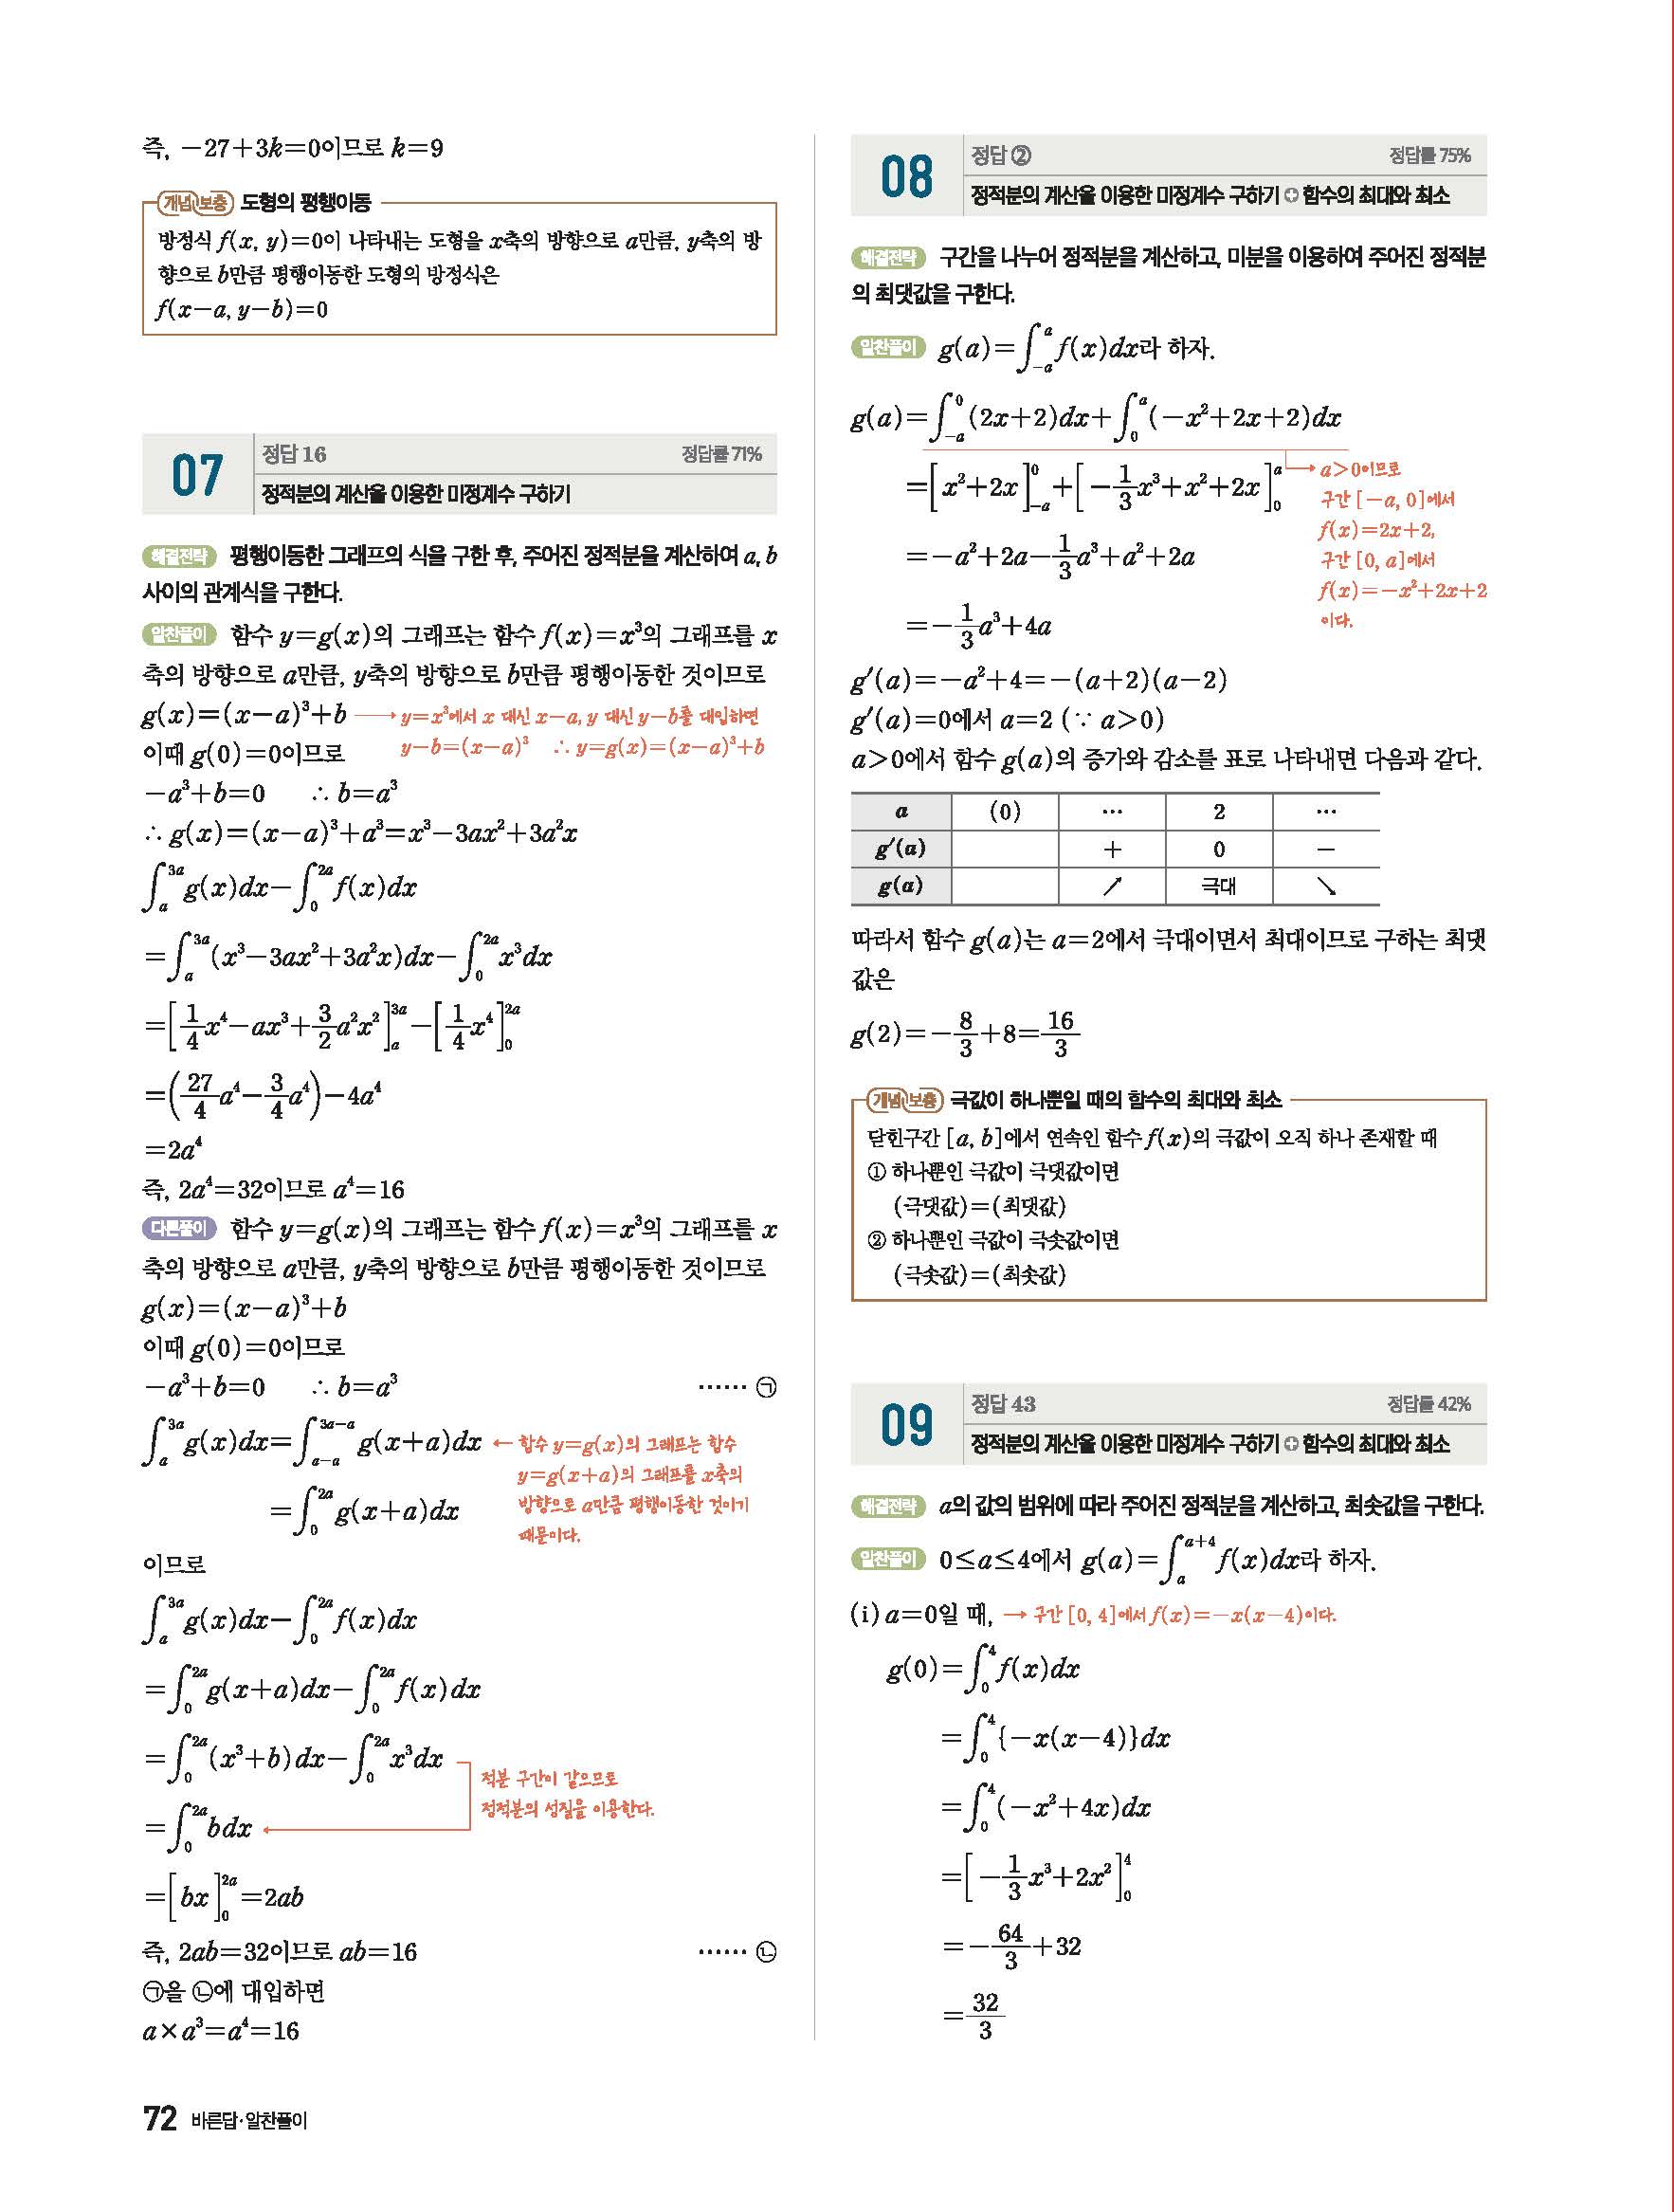 즉, −27+3k=0이므로 k=9
개념보충 도형의 평행이동
방정식 f(x, y)=0이 나타내는 도형을 x축의 방향으로 a만큼, y축의 방
향으로 b만큼 평행이동한 도형의 방정식은
f(x−a, y−b)=0
07 정답 16 정답률 71%
정적분의 계산을 이용한 미정계수 구하기
해결전략 평행이동한 그래프의 식을 구한 후, 주어진 정적분을 계산하여 a, b
사이의 관계식을 구한다.
알찬풀이 함수 y=g(x)의 그래프는 함수 f(x)=x³의 그래프를 x
축의 방향으로 a만큼, y축의 방향으로 b만큼 평행이동한 것이므로
g(x)=(x−a)³+b → y=x³에서 x 대신 x−a, y 대신 y−b를 대입하면
이때 g(0)=0이므로 y−b=(x−a)³ ∴ y=g(x)=(x−a)³+b
−a³+b=0 ∴ b=a³
∴ g(x)=(x−a)³+a³=x³−3ax²+3a²x
∫_a^{3a} g(x)dx−∫_0^{2a} f(x)dx
=∫_a^{3a} (x³−3ax²+3a²x)dx−∫_0^{2a} x³dx
=[1/4 x⁴−ax³+3/2 a²x²]_a^{3a}−[1/4 x⁴]_0^{2a}
=(27/4 a⁴−3/4 a⁴)−4a⁴
=2a⁴
즉, 2a⁴=32이므로 a⁴=16
다른풀이 함수 y=g(x)의 그래프는 함수 f(x)=x³의 그래프를 x
축의 방향으로 a만큼, y축의 방향으로 b만큼 평행이동한 것이므로
g(x)=(x−a)³+b
이때 g(0)=0이므로
−a³+b=0 ∴ b=a³ …… ㉠
∫_a^{3a} g(x)dx=∫_{a−a}^{3a−a} g(x+a)dx ← 함수 y=g(x)의 그래프는 함수
y=g(x+a)의 그래프를 x축의
=∫_0^{2a} g(x+a)dx 방향으로 a만큼 평행이동한 것이기
때문이다.
이므로
∫_a^{3a} g(x)dx−∫_0^{2a} f(x)dx
=∫_0^{2a} g(x+a)dx−∫_0^{2a} f(x)dx
=∫_0^{2a} (x³+b)dx−∫_0^{2a} x³dx
적분 구간이 같으므로
정적분의 성질을 이용한다.
=∫_0^{2a} bdx
=[bx]_0^{2a}=2ab
즉, 2ab=32이므로 ab=16 …… ㉡
㉠을 ㉡에 대입하면
a×a³=a⁴=16
08 정답 ② 정답률 75%
정적분의 계산을 이용한 미정계수 구하기 + 함수의 최대와 최소
해결전략 구간을 나누어 정적분을 계산하고, 미분을 이용하여 주어진 정적분
의 최댓값을 구한다.
알찬풀이 g(a)=∫_{−a}^a f(x)dx라 하자.
g(a)=∫_{−a}^0 (2x+2)dx+∫_0^a (−x²+2x+2)dx
=[x²+2x]_{−a}^0+[−1/3 x³+x²+2x]_0^a
→ a>0이므로
구간 [−a, 0]에서
f(x)=2x+2,
구간 [0, a]에서
f(x)=−x²+2x+2
이다.
=−a²+2a−1/3 a³+a²+2a
=−1/3 a³+4a
g′(a)=−a²+4=−(a+2)(a−2)
g′(a)=0에서 a=2 (∵ a>0)
a>0에서 함수 g(a)의 증가와 감소를 표로 나타내면 다음과 같다.
a (0) … 2 …
g′(a) + 0 −
g(a) ↗ 극대 ↘
따라서 함수 g(a)는 a=2에서 극대이면서 최대이므로 구하는 최댓
값은
g(2)=−8/3+8=16/3
개념보충 극값이 하나뿐일 때의 함수의 최대와 최소
닫힌구간 [a, b]에서 연속인 함수 f(x)의 극값이 오직 하나 존재할 때
① 하나뿐인 극값이 극댓값이면
(극댓값)=(최댓값)
② 하나뿐인 극값이 극솟값이면
(극솟값)=(최솟값)
09 정답 43 정답률 42%
정적분의 계산을 이용한 미정계수 구하기 + 함수의 최대와 최소
해결전략 a의 값의 범위에 따라 주어진 정적분을 계산하고, 최솟값을 구한다.
알찬풀이 0≤a≤4에서 g(a)=∫_a^{a+4} f(x)dx라 하자.
(i) a=0일 때, → 구간 [0, 4]에서 f(x)=−x(x−4)이다.
g(0)=∫_0^4 f(x)dx
=∫_0^4 {−x(x−4)}dx
=∫_0^4 (−x²+4x)dx
=[−1/3 x³+2x²]_0^4
=−64/3+32
=32/3
72 바른답·알찬풀이